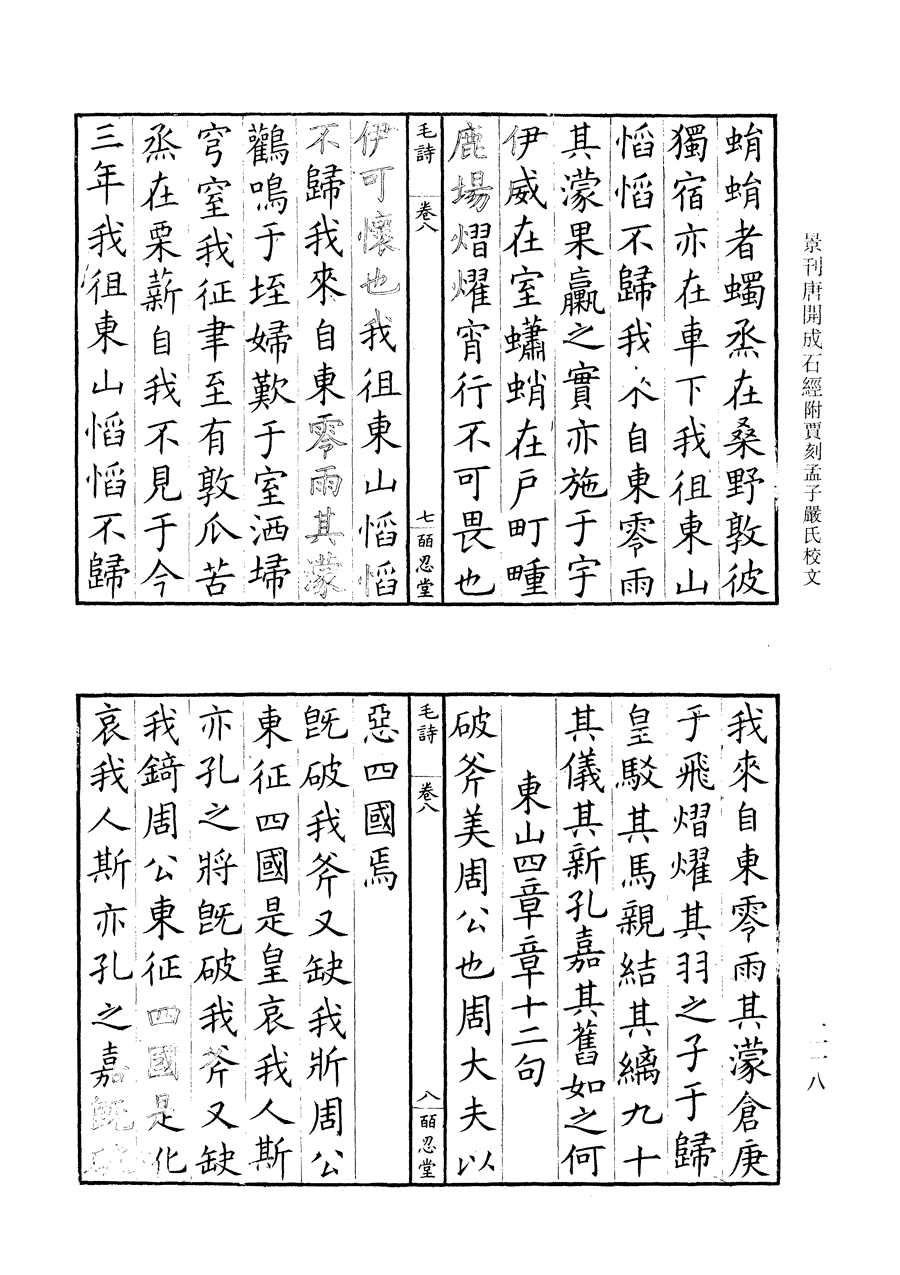 景刊唐開成石經附賈刻孟子嚴氏校文
蜎蜎者蠋烝在桑野敦彼
獨宿亦在車下我徂東山
慆慆不歸我來自東零雨
其濛果臝之實亦施于宇
伊威在室蠨蛸在戸町畽
鹿場熠燿宵行不可畏也
毛詩 卷八 七 皕忍堂
伊可懷也我徂東山慆慆
不歸我來自東零雨其濛
鸛鳴于垤婦歎于室洒埽
穹窒我征聿至有敦瓜苦
烝在栗薪自我不見于今
三年我徂東山慆慆不歸
我來自東零雨其濛倉庚
于飛熠燿其羽之子于歸
皇駁其馬親結其縭九十
其儀其新孔嘉其舊如之何
東山四章章十二句
破斧美周公也周大夫以
毛詩 卷八 八 皕忍堂
惡四國焉
旣破我斧又缺我斨周公
東征四國是皇哀我人斯
亦孔之將旣破我斧又缺
我錡周公東征四國是化
哀我人斯亦孔之嘉旣破
一一八